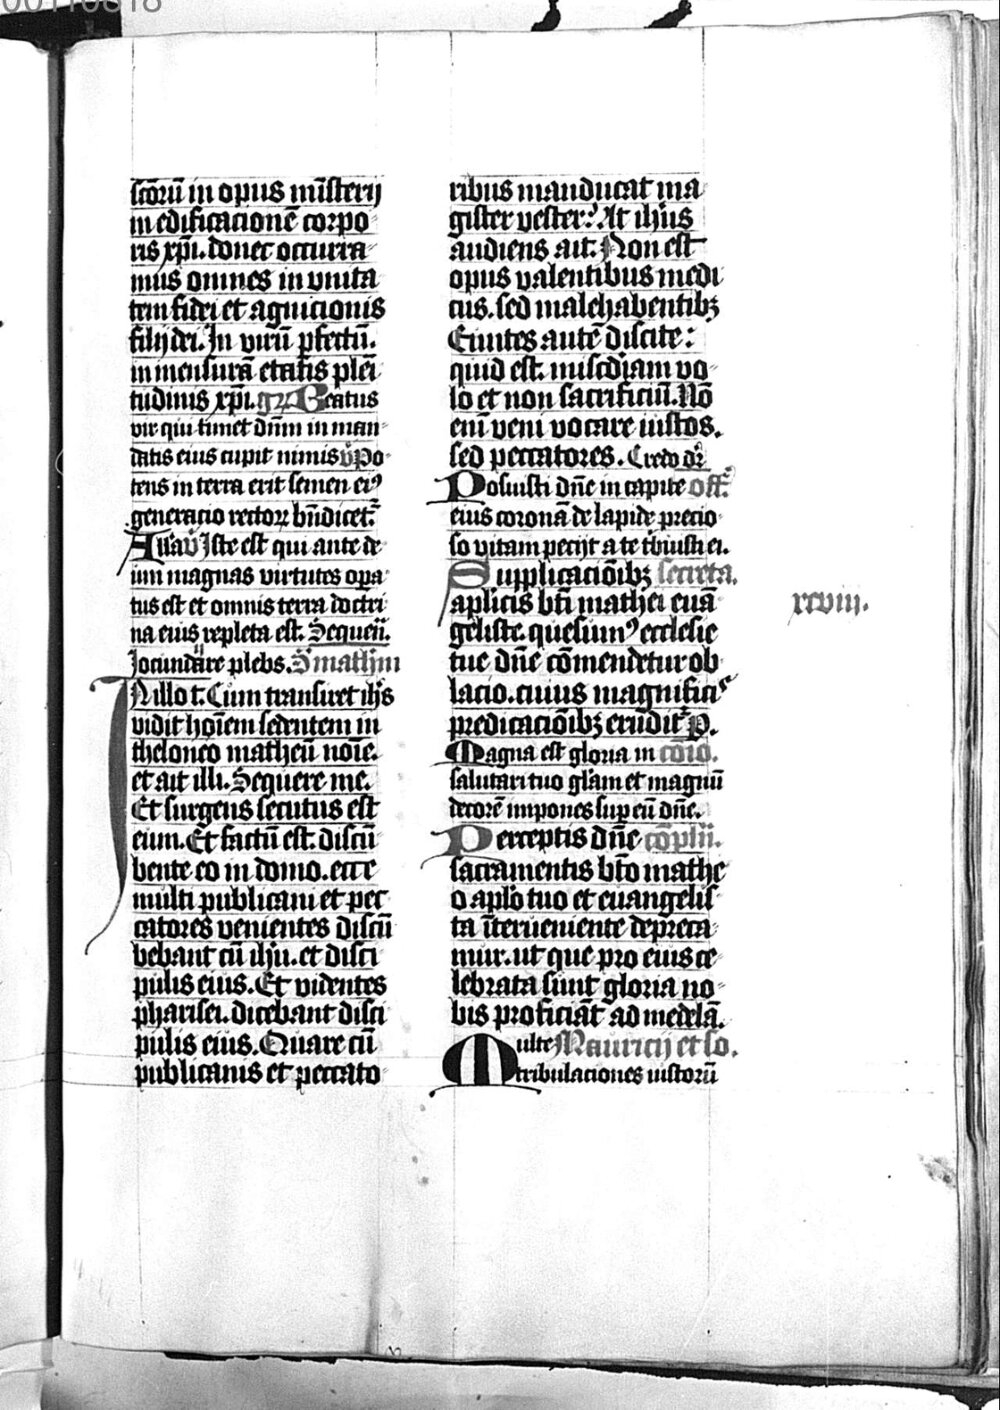 00110818
sc̄orū in opus mīsterij
in edificacionē corpo
ris xp̄i. donec occurra
mus omnes in vnita
tem fidei et agnicionis
filij dei. In virū pfectū.
in mensurā etatis plēi
tudinis xp̄i. gr̄ Beatus
vir qui timet dn̄m in man
datis eius cupit nimis v̄ Po
tens in terra erit semen ei⁹
generacio rectoꝝ bn̄dicet᷑
Alla v̄ Iste est qui ante de
um magnas virtutes opa
tus est et omnis terra doctri
na eius repleta est. Sequeñ.
Iocundare plebs. S̄ mathm
In illo t. Cum transiret ih̄s
vidit hoīem sedentem in
theloneo matheū noīe.
et ait illi. Sequere me.
Et surgens secutus est
eum. Et factū est. discū
bente eo in domo. ecce
multi publicani et pec
catores venientes discū
bebant cū ih̄u. et disci
pulis eius. Et videntes
pharisei. dicebant disci
pulis eius. Quare cū
publicanis et peccato
ribus manducat ma
gister vester? At ih̄us
audiens ait. Non est
opus valentibus medi
cus. sed malehabentibꝫ
Euntes autē discite:
quid est. misc̄diam vo
lo et non sacrificiū. Nō
enī veni vocare iustos.
sed peccatores. Credo dr̄
Posuisti dn̄e in capite off̄.
eius coronā de lapide precio
so vitam pecijt a te t̄buisti ei.
Supplicaciōibꝫ secreta.
aplicis bt̄i mathei euā
geliste. quesum⁹ ecclesie
tue dn̄e cōmendetur ob
lacio. cuius magnifici
predicaciōibꝫ erudit᷑ P.
Magna est gloria in cōio.
salutari tuo gl̄am et magnū
decorē impones sup eū dn̄e.
Perceptis dn̄e cōplñ.
sacramentis bt̄o mathe
o apl̄o tuo et euangelis
ta īterueniente depreca
mur. ut que pro eius ce
lebrata sunt gloria no
bis proficiāt ad medelā.
Multe Mauricij et so.
tribulaciones iustorū
xcviii.